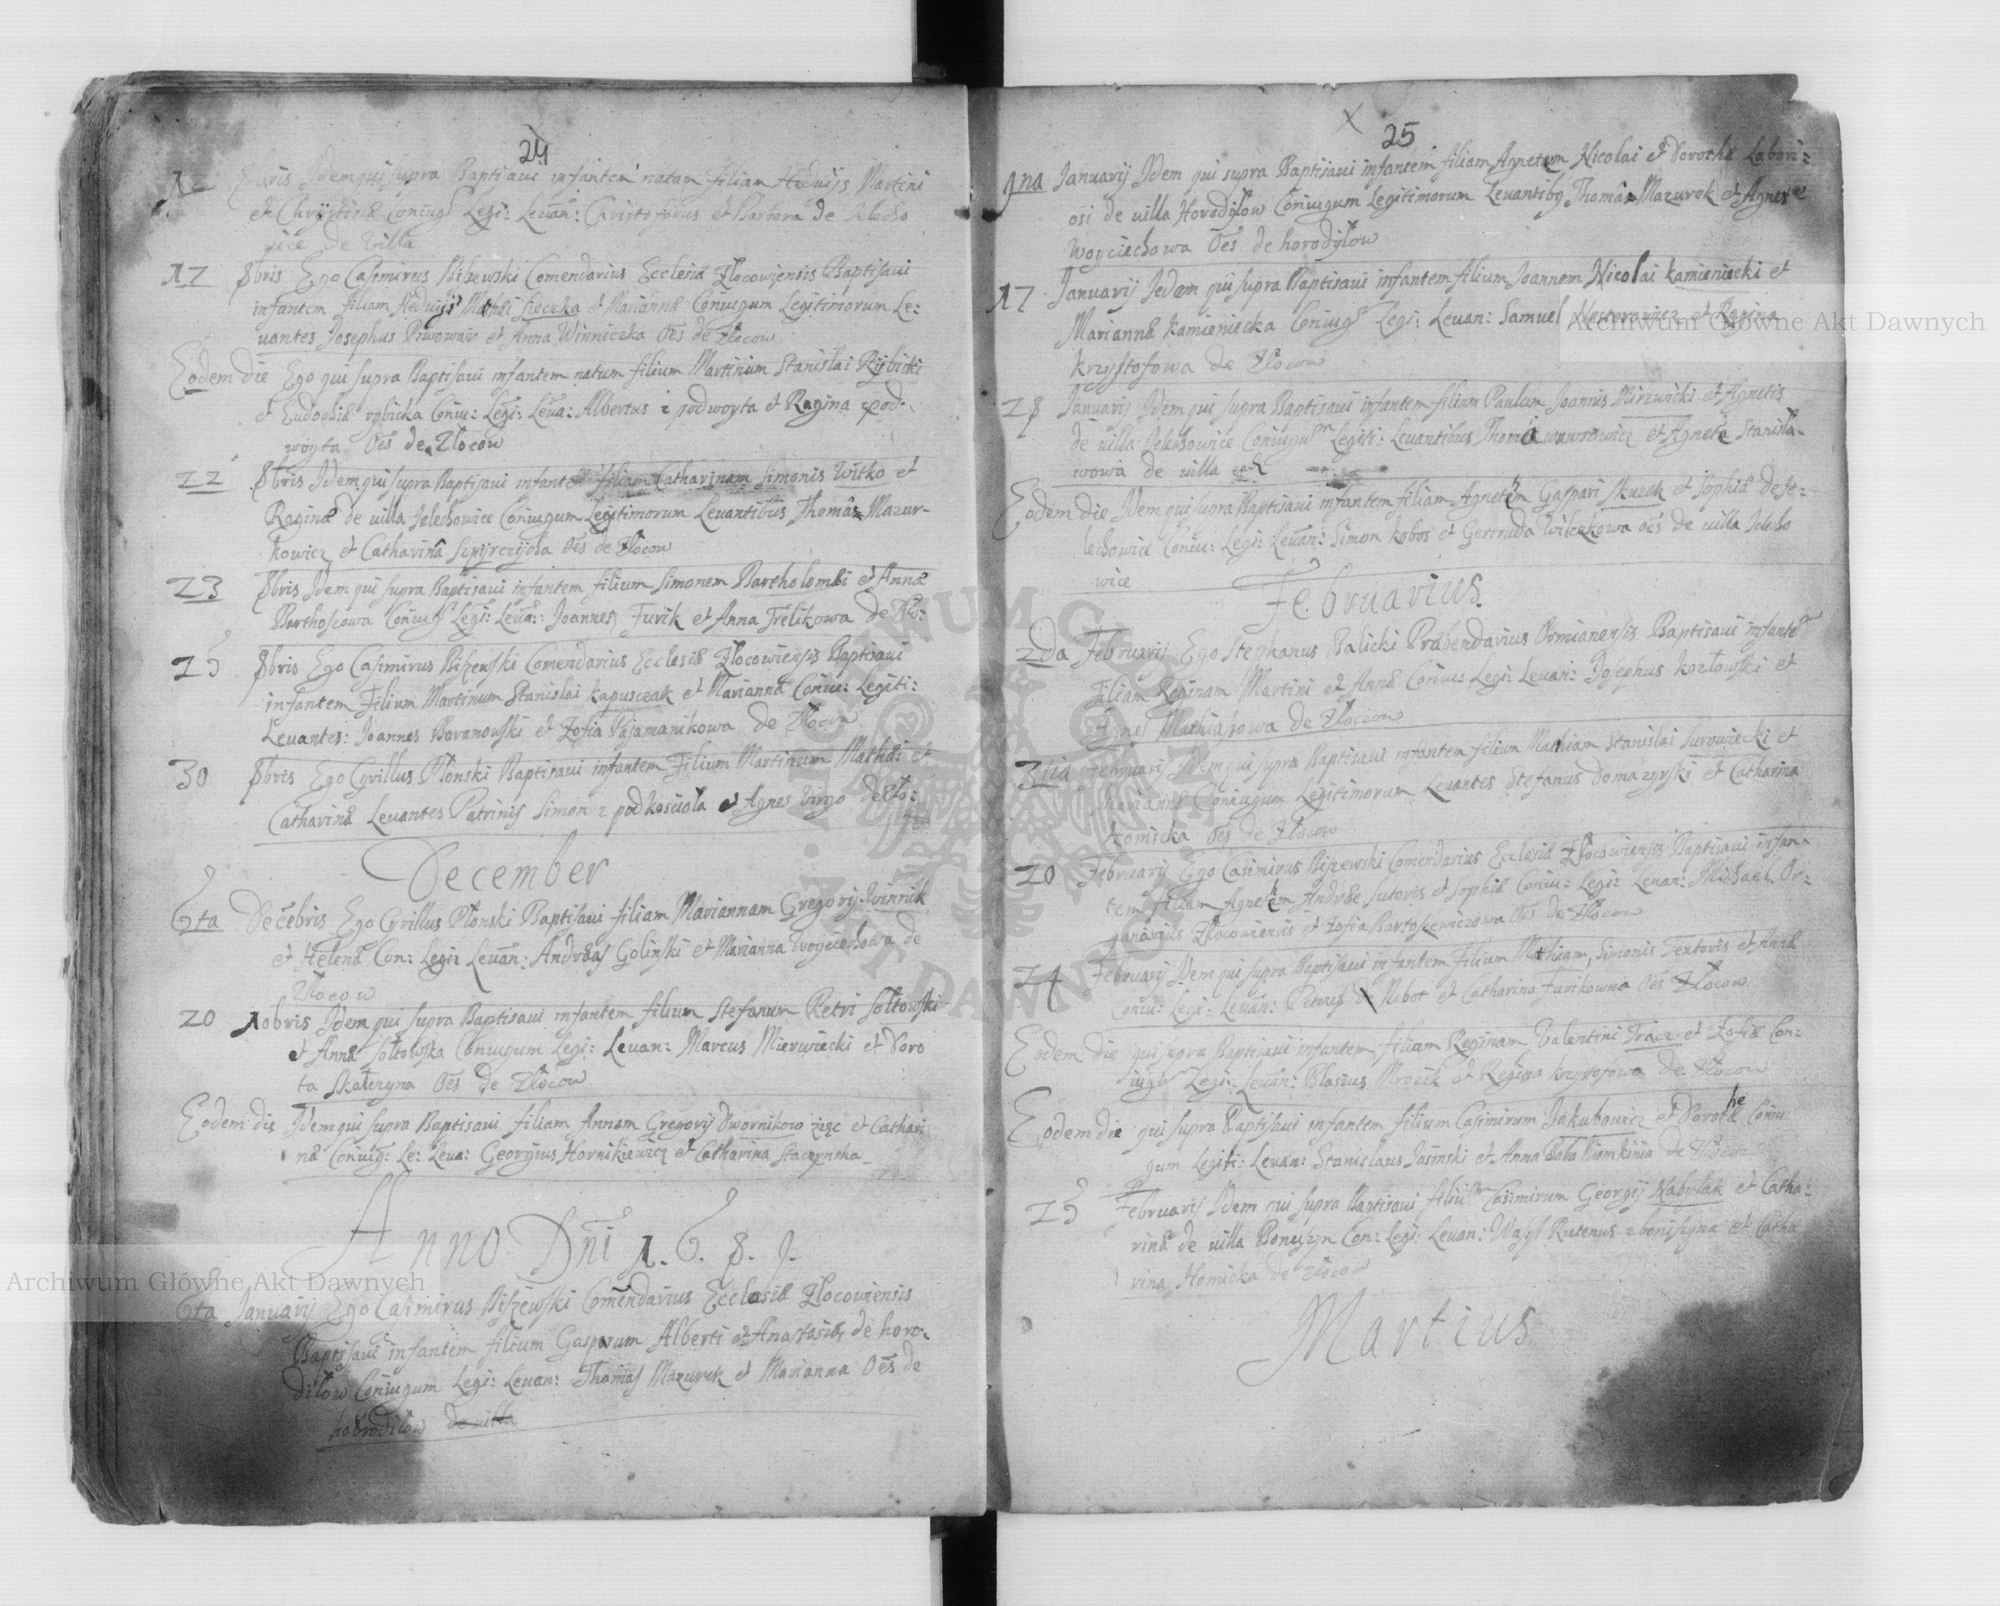 24
12 9bris Idem qui supra Baptisavi infantem natam filiam Hedvijs Martini
et Christinæ Coniug: Legi: Levan: Christoforus et Barbara de Jelecho
wice de villa
17 9bris Ego Casimirus Biżewski Comendarius Ecclesiæ Złocowiensis Baptisavi
infantem filiam Hedvigis Mathæi Sieczka et Mariannæ Coniugum Legitimorum Le:
vantes Josephus Piwowar et Anna Winniczka Oẽs de Złocow
Eodem die Ego qui supra Baptisavi infantem natum filium Martinum Stanislai Rijbicki
et Eudochiæ rybicka Coniu: Legi: Leva: Albertus z podwoyta et Ragina spod-
woyta Oẽs de Złocow
22 9bris Idem qui supra Baptisavi infantẽ filiam Catharinam Simonis Witko et
Raginæ de villa Jelechowice Coniugum Legitimorum Levantibus Thomas Mazur-
kowicz et Catharina Oẽs de Złocow
23 9bris Idem qui supra Baptisavi infantem filium Simonem Bartholomei et Annæ
Barthoszowa Coniug Legi: Leva: Joannes Furik et Anna Frelikowa de Zło:
25 9bris Ego Casimirus Biżewski Comendarius Ecclesiæ Złocowiensis Baptisavi
infantem Filium Martinum Stanislai Kapusczak et Mariannæ Coniu: Legiti:
Levantes: Joannes Boranowski et Zofia Pajamanikowa de Złocow
30 9bris Ego Cyrillus Płonski Baptisavi infantem Filium Martinum Mathæi et
Catharinæ Levantes Patrinis Simon z pod kosciola et Agnes Virgo de Zło:
December
6ta Decẽbris Ego Cyrillus Płonski Baptisavi filiam Mariannam Gregorij Winnik
et Helenæ Con: Legi: Levan: Andræas Golinski et Marianna Woyciechowa de
Złocow
20 10bris Idem qui supra Baptisavi infantem filium Stefanum Petri Sołtowski
et Annæ Sołtowska Coniugum Legi: Levan: Marcus Mierwiecki et Doro
ta Skałczyna Oẽs de Złocow
Eodem die Idem qui supra Baptisavi filiam Annam Gregorij Dwornikow zięc et Cathari
næ Coniug: Le: Leva: Georgius Hornikiewicz et Catharina
Anno Dñi 1.6.8.9.
6ta Januarij Ego Casimirus Biżewski Comendarius Ecclesiæ Złocowiensis
Baptisavi infantem filium Gasparum Alberti et Anastasiæ de horo-
diłow Coniugum Legi: Levan: Thomas Mazurek et Marianna Oẽs de
horodiłow de villa
25
9na Januarij Idem qui supra Baptisavi infantem filiam Agnetem Nicolai et Dorothæ Labori:
osi de villa Horodyłow Coniugum Legitimorum Levantibus Thomas Mazurek et Agnes
Woyciechowa Oẽs de horodyłow
17 Januarij Idem qui supra Baptisavi infantem filium Joannem Nicolai kamieniecki et
Mariannæ kamieniecka Coniug Legi: Levan: Samuel Nesterowicz et Ragina
krzystofowa de Złocow
28 Januarij Idem qui supra Baptisavi infantem filium Paulum Joannis Mirzwicki et Agnetis
de villa Jelechowice Coniugum Legiti: Levantibus Thoma wawrowicz et Agneta Stanisła-
wowa de villa eadẽ
Eodem die Idem qui supra Baptisavi infantem filiam Agnetem Gaspari Skuzak et Sophiæ de Je:
lechowice Coniu: Legi: Levan: Simon kobos et Gertruda Wilczkowa oẽs de villa Jelecho
wice
Februarius
2da Februarij Ego Stephanus Balicki Præbendarius Baptisavi infantẽ
Filiam Reginam Martini et Annæ Coniu: Legi: Levan: Josephus kozłowski et
Agnes Mathiaszowa de Złoczow
Februarij Idem qui supra Baptisavi infantem filium Mathiam Stanislai Surowiecki et
Mariannæ Coniugum Legitimorum Levantes Stefanus Domazyrski et Catharina
Homicka Oẽs de Złocow
20 Februarij Ego Casimirus Biżewski Comendarius Ecclesiæ Złocowiensis Baptisavi infan-
tem filiam Agnethem Andreæ Sutoris et Sophiæ Coniu: Legi: Levan: Michael Or-
ganarius Złocowiensis et Zofia Bartoszewiczowa Oẽs de Złocow
24 Februarij Idem qui supra Baptisavi infantem Filium Mathiam, Simonis Textoris et Annæ
Coniu: Legi: Levan: Petrus Robot et Catharina Furikowna Oẽs Złocow
Eodem die qui supra Baptisavi infantem filiam Reginam Valentini Tracz et Zofiæ Con:
iugũ Legi: Levan: Blasius Mrozik et Regina krzystofowa de Złocow
Eodem die qui supra Baptisavi infantem filium Casimirum Jakubowicz et Dorothe Coniu
gum Legiti: Levan: Stanislaus Jasinski et Anna Baba Niemkinia de Złocow
25 Februarij Idem qui supra Baptisavi filium Casimirum Georgij Nabylak et Catha:
rinæ de villa Boniszyn Con: Legi: Levan: Wasyl Rutenus z boniszyna et Catha
rina Homicka de Złocow
Martius
Archiwum Główne Akt Dawnych
Archiwum Główne Akt Dawnych